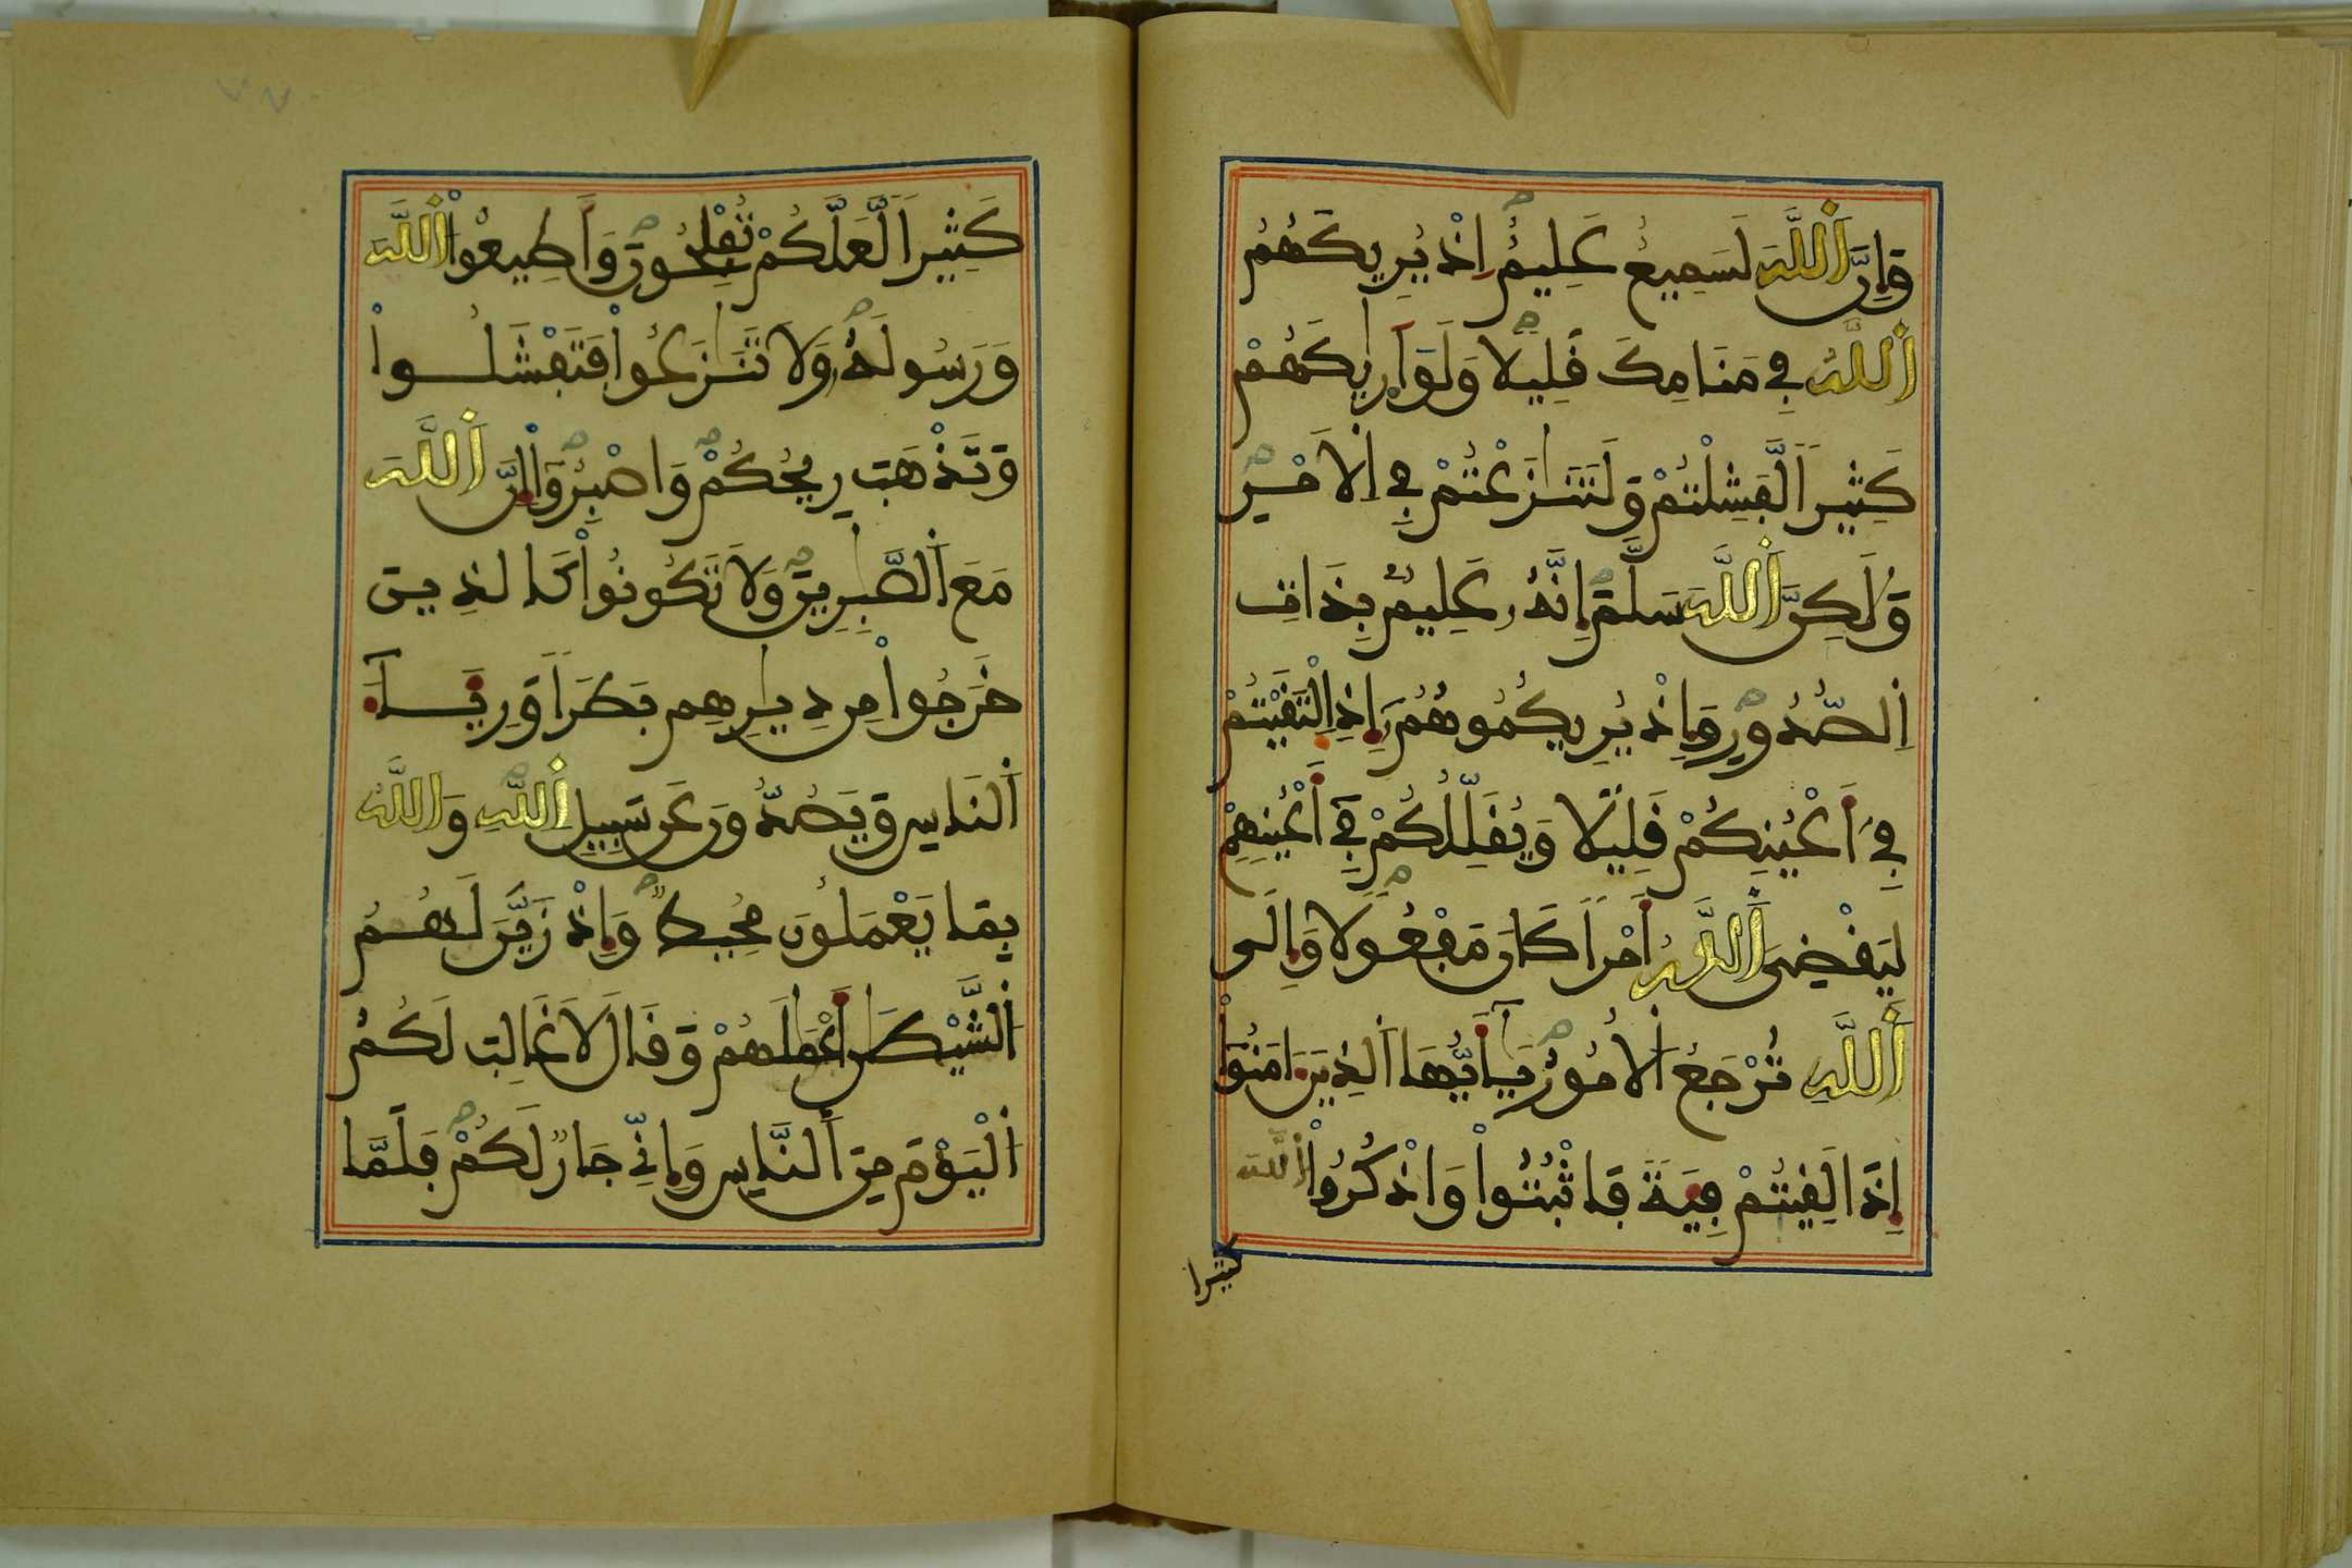 وَإِنَّ اَللَّهَ لَسَمِيعٌ عَلِيمٌ اِذْ يُرِيكَهُمُ
اُللَّهُ فِے مَنَامِكَ قَلِيلًا وَلَوَ اَرٰيكَهُمْ
كَثِيراً لَّفَشِلْتُمْ وَلَتَنَٰزَعْتُمْ فِے اِلَامْرِ
وَلَٰكِنَّ اَللَّهَ سَلَّمَ إِنَّهُۥ عَلِيمٌ بِذَاتِ
اِلصُّدُورِ وَإِذْ يُرِيكُمُوهُمُۥٓ إِذِ اِلْتَقَيْتُمْ
فِےٓ أَعْيُنِكُمْ قَلِيلًا وَيُقَلِّلُكُمْ فِےٓ أَعْيُنِهِمْ
لِيَقْضِيَ اَللَّهُ أَمْراً كَانَ مَفْعُولًا وَإِلَى
اَللَّهِ تُرْجَعُ اُلُامُورُ يَٰٓأَيُّهَا اَلذِينَ ءَامَنُوٓاْ
إِذَا لَقِيتُمْ فِئَةً فَاثْبُتُواْ وَاذْكُرُواْ اُللَّهَ
كثيرا
كَثِيراً لَّعَلَّكُمْ تُفْلِحُونَ وَأَطِيعُواْ اُللَّهَ
وَرَسُولَهُۥ وَلَا تَنَٰزَعُواْ فَتَفْشَلُواْ
وَتَذْهَبَ رِيحُكُمْ وَاصْبِرُوٓاْ إِنَّ اَللَّهَ
مَعَ اَلصَّٰبِرِينَ وَلَا تَكُونُواْ كَالذِينَ
خَرَجُواْ مِن دِيٰرِهِم بَطَراً وَرِئَآءَ
اَلنَّاسِ وَيَصُدُّونَ عَن سَبِيلِ اِللَّهِ وَاللَّهُ
بِمَا يَعْمَلُونَ مُحِيطٌ وَإِذْ زَيَّنَ لَهُمُ
اُلشَّيْطَٰنُ أَعْمَٰلَهُمْ وَقَالَ لَا غَالِبَ لَكُمُ
اُلْيَوْمَ مِنَ اَلنَّاسِ وَإِنِّے جَارٌ لَّكُمْ فَلَمَّا